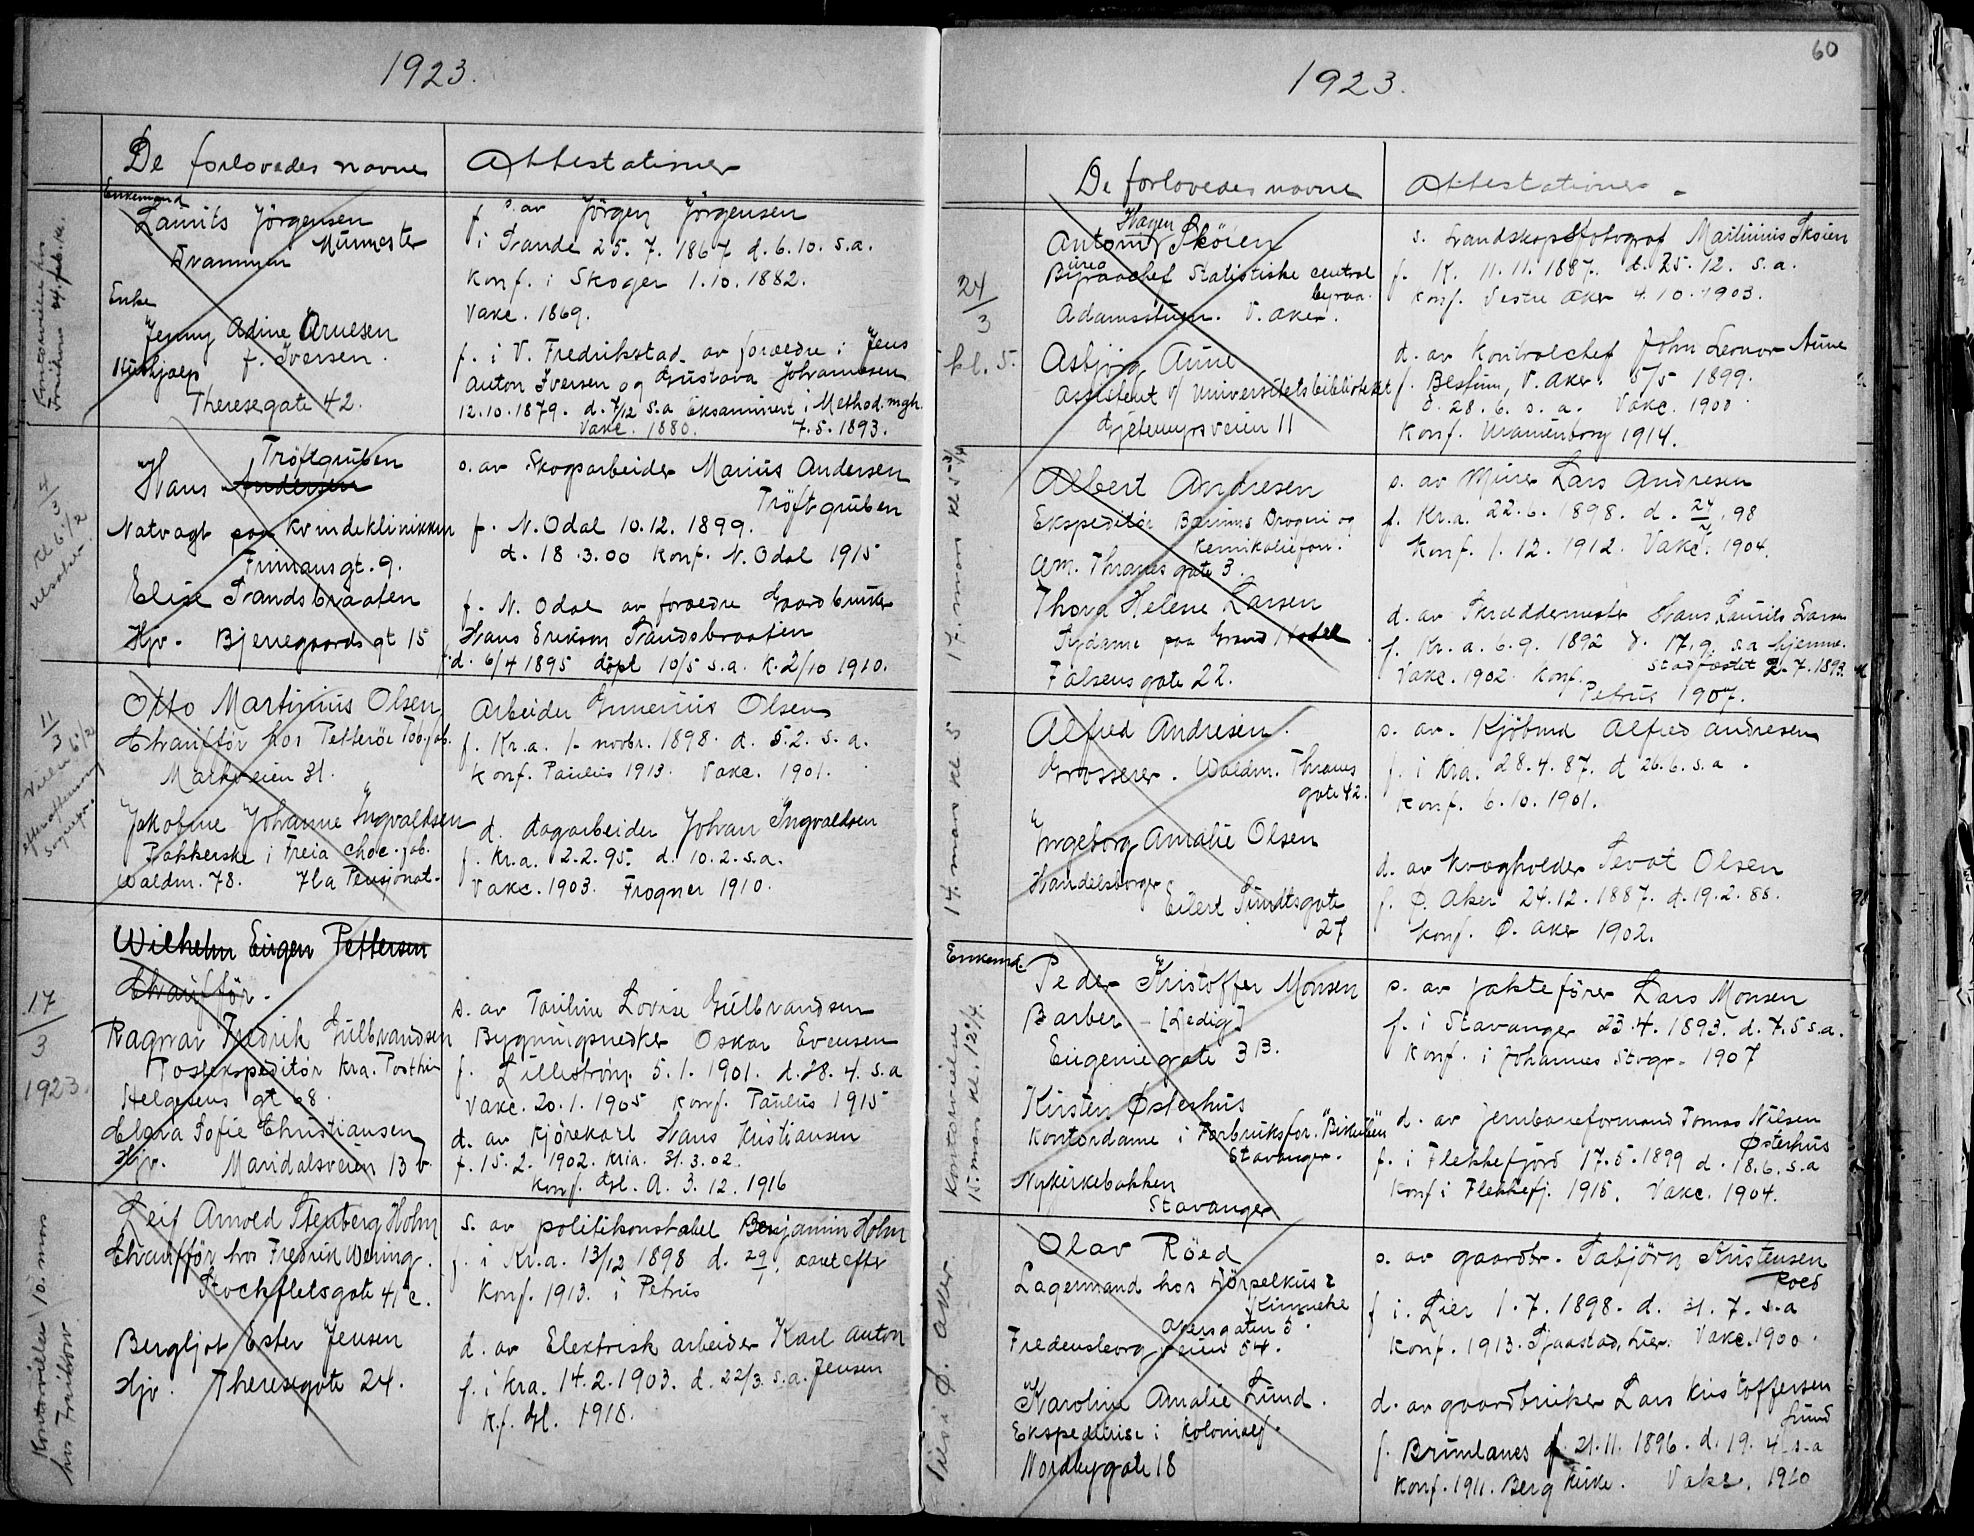 1923.
De forlovedes navne
Attestationer
Enkemand
Lauritz Jörgensen
Murmester
Drammen
Enke
Jenny Adine Arnesen
f. Iversen.
Hushjælp
Theresegate 42.
s. av Jörgen Jörgensen
f. i Sande 25. 7. 1867 d. 6.10. s.a.
Konf. i Skoger 1.10. 1882.
Vakc. 1869.
f. i V. Fredrikstad av forældre: Jens
Anton Iversen og Gustava Johannesen
12.10.1879. d. 7/12 s.a Eksaminert i Method. mgh.
Vakc. 1880. 7.5.1893.
4/3
Kl 6 1/2
Tröftgruben
Hans Andersen
Natvagt paa Kvindeklinikken
Frimansgt. 9.
Elise Sandsbraaten
Hjv. Bjerregaards gt 15
s. av Skogsarbeider Marius Andersen
Tröftgruben
f. N. Odal 10.12. 1899.
d. 18.3.00 Konf. N. Odal 1915
f. N. Odal av forældre Gaardbruker
Hans Erikson Sandsbraaten
d. 6/4 1895 döpt 10/5 s.a. K. 2/10 1910.
11/3
Otto Martinius Olsen
Chaufför hos Petteröe Tob.fab.
Markveien 31.
Jakobine Johanne Ingvaldsen
Pakkerske i Freia Choc. fab.
Waldm. 78. Hla Pensjonat.
Arbeider Gunerius Olsen
f. Kr.a. 1. novbr. 1898. d. 5.2. s.a.
Konf. Paulus 1913. Vakc. 1901.
d. dagarbeider Johan Ingvaldsen
f. Kr.a. 2.2.95. d. 10.2. s.a.
Vakc. 1903. Frogner 1910.
17/3
1923.
Wilhelm Eugen Pettersen
Chaufför.
Ragnar Fredrik Gulbrandsen
Postekspeditör Kra. Posthus
Helgesens gt 68.
Clara Sofie Christiansen
Hjv. Maridalsveien 13 b.
s. av Pauline Lovise Gulbrandsen
Bygningssnedker Oskar Evensen
f. Lilleström 5.1. 1901. d. 28. 4. s.a
Vakc. 20.1.1905 Konf. Paulus 1915
d. av Kjörekarl Hans Kristiansen
f. 15. 2. 1902. Kria. 31.3.02.
Konf. Gl. A. 3.12. 1916
Kontorvielse 10. mars
hos Frithjov.
Leif Arnold Stenberg Holm
Chaufför hos Fredrik Wering.
Stockfletsgate 41 c.
Bergljot Ester Jensen
Hjv. Theresegate 24.
s. av politikonstabel Benjamin Holm
f. i Kr.a. 13/12 1898 d. 29/1. aaret efter
Konf. 1913. i Petrus
d. av Elektrisk arbeider Karl Anton
Jensen
f. i Kra. 14.2.1903. d. 22/3. s.a.
Kf. Gl. 1918.
60
1923.
De forlovedes navne
Attestationer
24/3
kl. 5.
Hagen
Antom Sköien
Byraachef Statistiske central
byraa.
Adamsstuen. V. Aker.
Asbjörg Aune
Assistent v/ Universitetsbiblioteket
Gjetemyrsveien 11
s. Landskapsfotograf Martinius Sköien
f. K. 11.11. 1887. d. 25.12. s.a.
Konf. Vestre Aker 4.10.1903.
d. av Kontrolchef John Leonor Aune
f. Bestum, V. Aker. 5/5 1899.
d. 28. 6. s. a. Vakc. 1900.
Konf. Uranienborg 1914.
17. mars Kl. 5
Albert Andresen
Ekspeditör Bærums Drogeri og
Kemikaliefor.
Am. Thranes gate 3.
Thora Helene Larsen
Sydame paa Grand Hotel
Falsens gate 22.
s. av Murer Lars Andresen
f. Kr.a. 22.6. 1898. d. 24/7. 98
Konf. 1.12. 1912. Vakc. 1904.
d. av Skræddermester Hans Laurits Larsen
f. Kr.a. 6.9. 1892 d. 17.9. s.a hjemme.
Stadfæstet 2.7.1893.
Vakc. 1902. Konf.
Petrus 1907.
14. mars Kl 5
Alfred Andresen.
Grosserer. Waldm. Thranes
gate 42.
Ingeborg Amalie Olsen
Handelsborger
Eilert Sundtsgate
27
s. av. Kjöbmd Alfred Andresen
f. i Kra. 28.4.87. d 26.6. s.a.
Konf. 6.10. 1901.
d. av Kvægholder Tevot Olsen
f. Ø. Aker 24.12. 1887. d. 19.2.88.
Konf. Ø. Aker 1902.
Kontorvielse
15. mars Kl. 12 1/4.
Enkemd.
Peder Kristoffer Monsen
Barber - [Ledig]
Eugeniegate 3 B.
Kirsten Østerhus
Kontordame i Forbruksfor. "Bikuben"
Stavanger.
Nykirkebakken
Stavanger
s. av jaktefører Lars Monsen
f. i Stavanger 23.4. 1893. d. 7.5 s.a.
Konf. i Johannes Stvgr. 1907
d. av jernbaneformand Tomas Nilsen
Østerhus
f. i Flekkefjord 17.5.1899 d. 18.6. s.a
Konf i Flekkefj. 1915. Vakc. 1904.
Viet i Ø. Aker
Olav Röed
Lagermand hos Törpelkus &
Kinneke
Akersgaten 8.
Fredensborg veien 54.
Karoline Amalie Lund.
Ekspeditrise i Kolonialf.
Nordbygate 18
s. av gaardbr. Tabjörn Kristensen
Roed
f i. Lier 1.7. 1898. d. 31.7. s.a
Konf. 1913. Sjaastad, Lier. Vakc. 1900.
d. av gaardbruker Lars Kristoffersen
Lund
f. Brunlanes 21.11. 1896. d. 19. 4. s.a
Konf. 1911. Berg kirke. Vakc. 1910